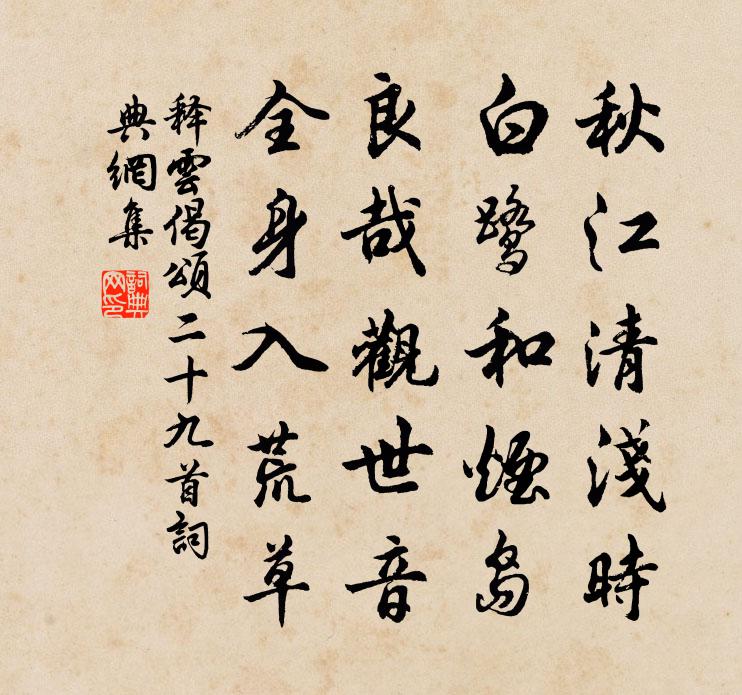 秋江清淺時
白鷺和煙島
良哉觀世音
全身入荒草
释雲偈頌二十九首詞
典網集
詞典
网印